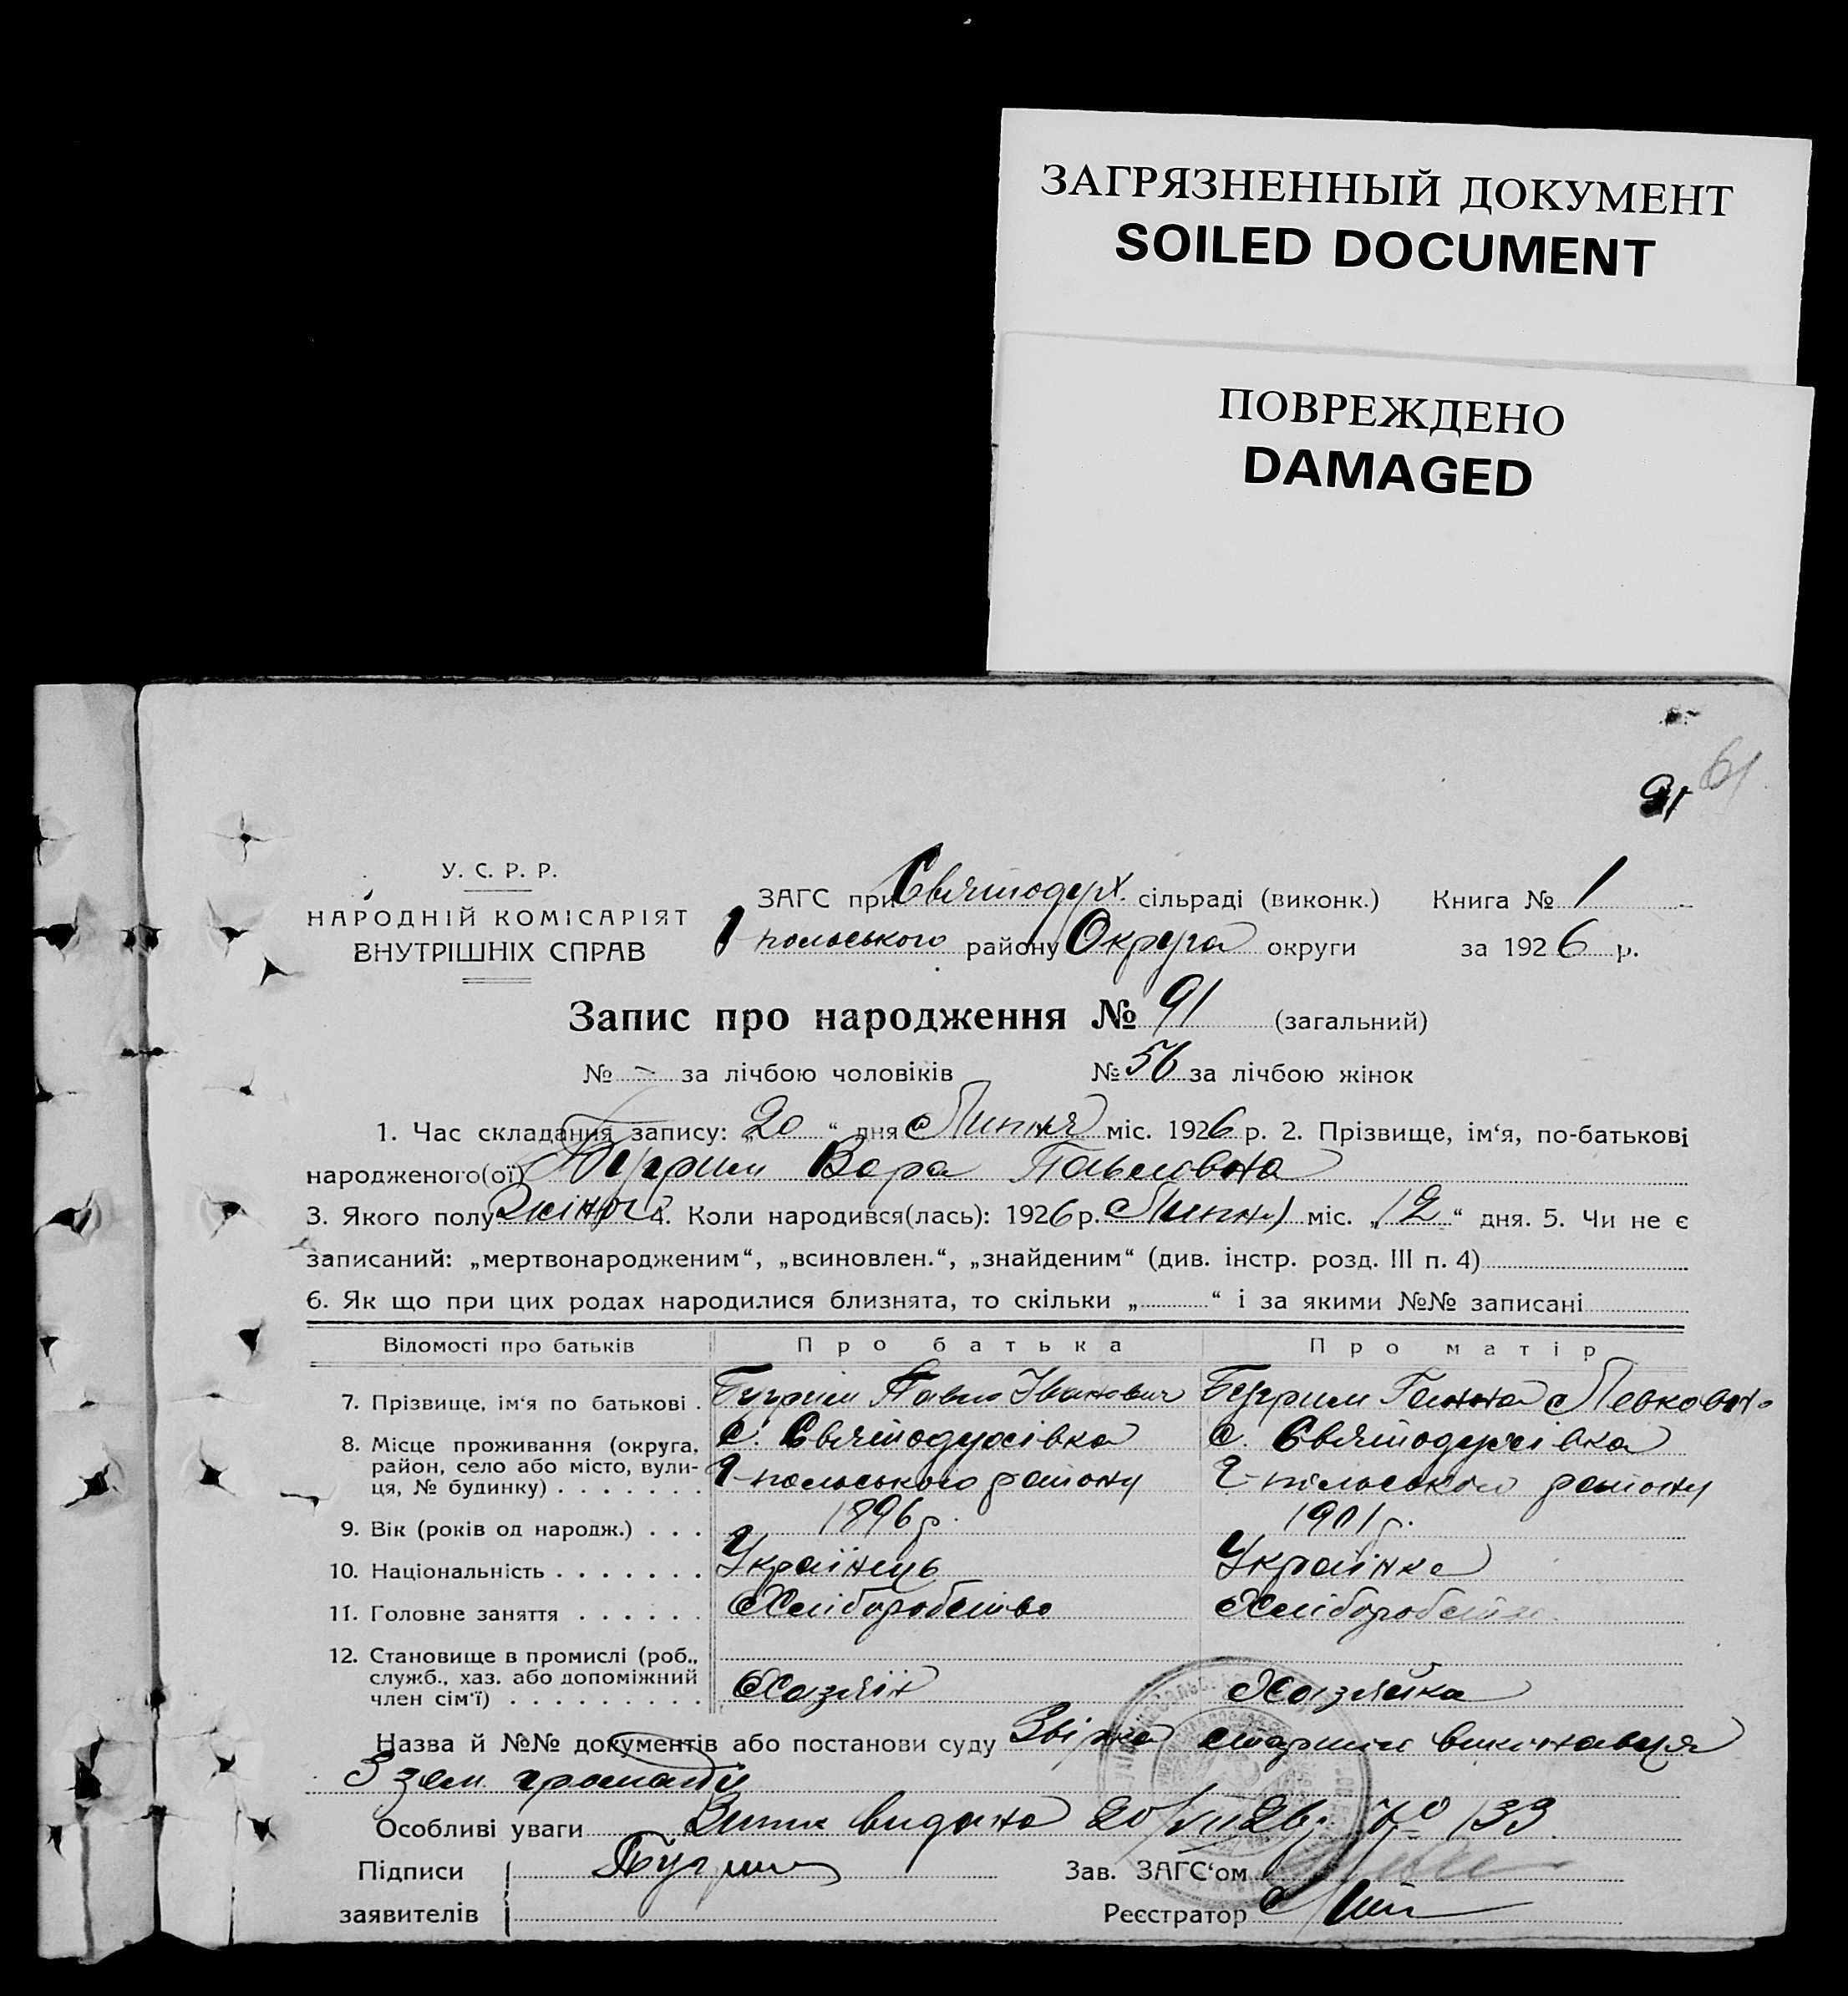 ЗАГРЯЗНЕННЫЙ ДОКУМЕНТ
SOILED DOCUMENT
ПОВРЕЖДЕНО
DAMAGED
61
91
У. С. Р. Р.
НАРОДНІЙ КОМІСАРІЯТ
ВНУТРІШНІХ СПРАВ
ЗАГС при Святодух. сільраді (виконк.) Книга № 1
польського району Округа округи за 1926 р.
Запис про народження № 91 (загальний)
№ - за лічбою чоловіків № 56 за лічбою жінок
1. Час складання запису: „20“ дня Липня міс. 1926 р. 2. Прізвище, ім‘я, по-батькові
народженого(ої) Бугрим Вера Павловна
3. Якого полу жіноч 4. Коли народився(лась): 1926 р. Липня міс. „12“ дня. 5. Чи не є
записаний: „мертвонародженим“, „всиновлен.“, „знайденим“ (див. інстр. розд. III п. 4)
6. Як що при цих родах народилися близнята, то скільки „ “ і за якими №№ записані
Відомості про батьків Про батька Про матір
7. Прізвище, ім‘я по батькові . Бугрим Павло Іванович Бугрим Ганна Левковна
8. Місце проживання (округа, район, село або місто, вулиця, № будинку) . . . . . . . с. Святодухівка с. Святодухівка
польського району польського району
9. Вік (років од народж.) . . . 1896 р. 1901 р.
10. Національність . . . . . . . Українець Українка
11. Головне заняття . . . . . . Хліборобство Хліборобство
12. Становище в промислі (роб., служб., хаз. або допоміжний член сім‘ї) . . . . . . . . . Хазяїн Хазяйка
Назва й №№ документів або постанови суду виконавця
З зем громади
Особливі уваги видана 20/VII 26 р. № 133.
Підписи Бугрим Зав. ЗАГС‘ом
заявителів Реєстратор